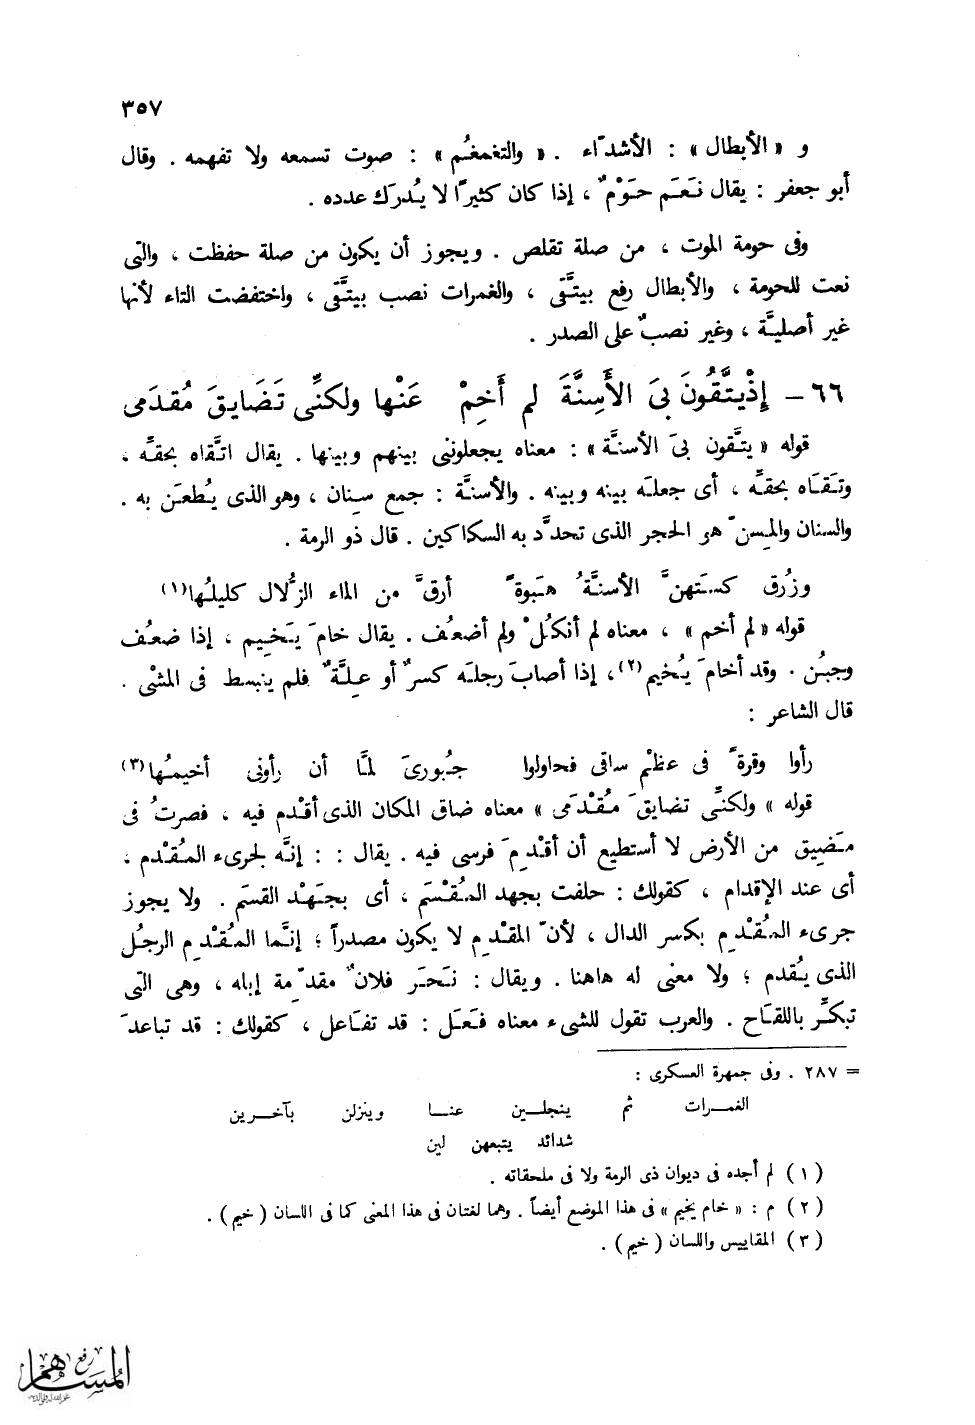 ٣٥٧
و «الأبطال» : الأشدّاء . «والتغمغُم» : صوت تسمعه ولا تفهمه . وقال
أبو جعفر : يقال نَعَم حَوْمٌ ، إذا كان كثيرًا لا يُدرَك عدده .
وفى حومة الموت ، من صلة تقلص . ويجوز أن يكون من صلة حفظت ، والتى
نعت للحومة ، والأبطال رفع بيتَّقى ، والغمرات نصب بيتَّقى ، واختفضت التاء لأنها
غير أصليَّة ، وغير نصبٌ على الصدر .
٦٦ – إِذْ يَتَّقُونَ بِىَ الأَسِنَّةَ لم أَخِمْ عَنْها ولكنِّى تَضَايقَ مُقدَمى
قوله «يتَّقون بىَ الأسنَّة» : معناه يجعلوننى بينهم وبينها . يقال اتَّقاه بحقه ،
وتَقَاه بحقِّه ، أى جعلَه بينه وبينه . والأسنَّة : جمع سِنان ، وهو الذى يُطعَن به .
والسنان والمِسنّ هو الحجر الذى تحدَّد به السكاكين . قال ذو الرمة .
وزُرق كستَهنَّ الأسنَّةُ هَبوةً أرقَّ من الماء الزُّلال كليلُها (١)
قوله «لم أخم» ، معناه لم أنكُلْ ولم أضعُف . يقال خامَ يَخيم ، إذا ضعُف
وجبُن . وقد أخامَ يُخيم (٢) ، إذا أصابَ رجلَه كسرٌ أو عِلَّةٌ فلم ينبسط فى المشْى .
قال الشاعر :
رأوا وقرةً فى عظْمِ ساقى فحاولوا جُبورىَ لمَّا أن رأونى أخيمُها (٣)
قوله » ولكنِّى تضايقَ مُقْدَمى » معناه ضاق المكان الذى أقْدم فيه ، فصرتُ فى
مَضِيق من الأرض لا أستطيع أن أقْدِمَ فرسى فيه . يقال : : إنَّه لجرىء المُقْدم ،
أى عند الإقدام ، كقولك : حلفت بجهد المُقْسَم ، أى بجَهْد القسَم . ولا يجوز
جرىء المُقْدِم بكسر الدال ، لأنّ المقْدِم لا يكون مصدراً ؛ إنَّما المُقْدِم الرجلُ
الذى يُقدم ؛ ولا معنى له هاهنا . ويقال : نَحَر فلانٌ مقدِّمة إبله ، وهى التى
تبكِّر باللقَاح . والعرب تقول للشىء معناه فَعَل : قد تفَاعل ، كقولك : قد تباعدَ
= ٢٨٧ . وفى جمهرة العسكرى :
الغمـرات ثم ينجلـين عنـا وينزلن بآخـرين
شدائد يتبعهن لين
(١) لم أجده فى ديوان ذى الرمة ولا فى ملحقاته .
(٢) م : «خام يخيم» فى هذا الموضع أيضاً . وهما لغتان فى هذا المعنى كما فى اللسان (خيم) .
(٣) المقاييس واللسان (خيم) .